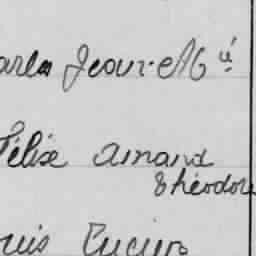 arles Jean-M^a
Félix Amand
Théodore
ouis Lucien